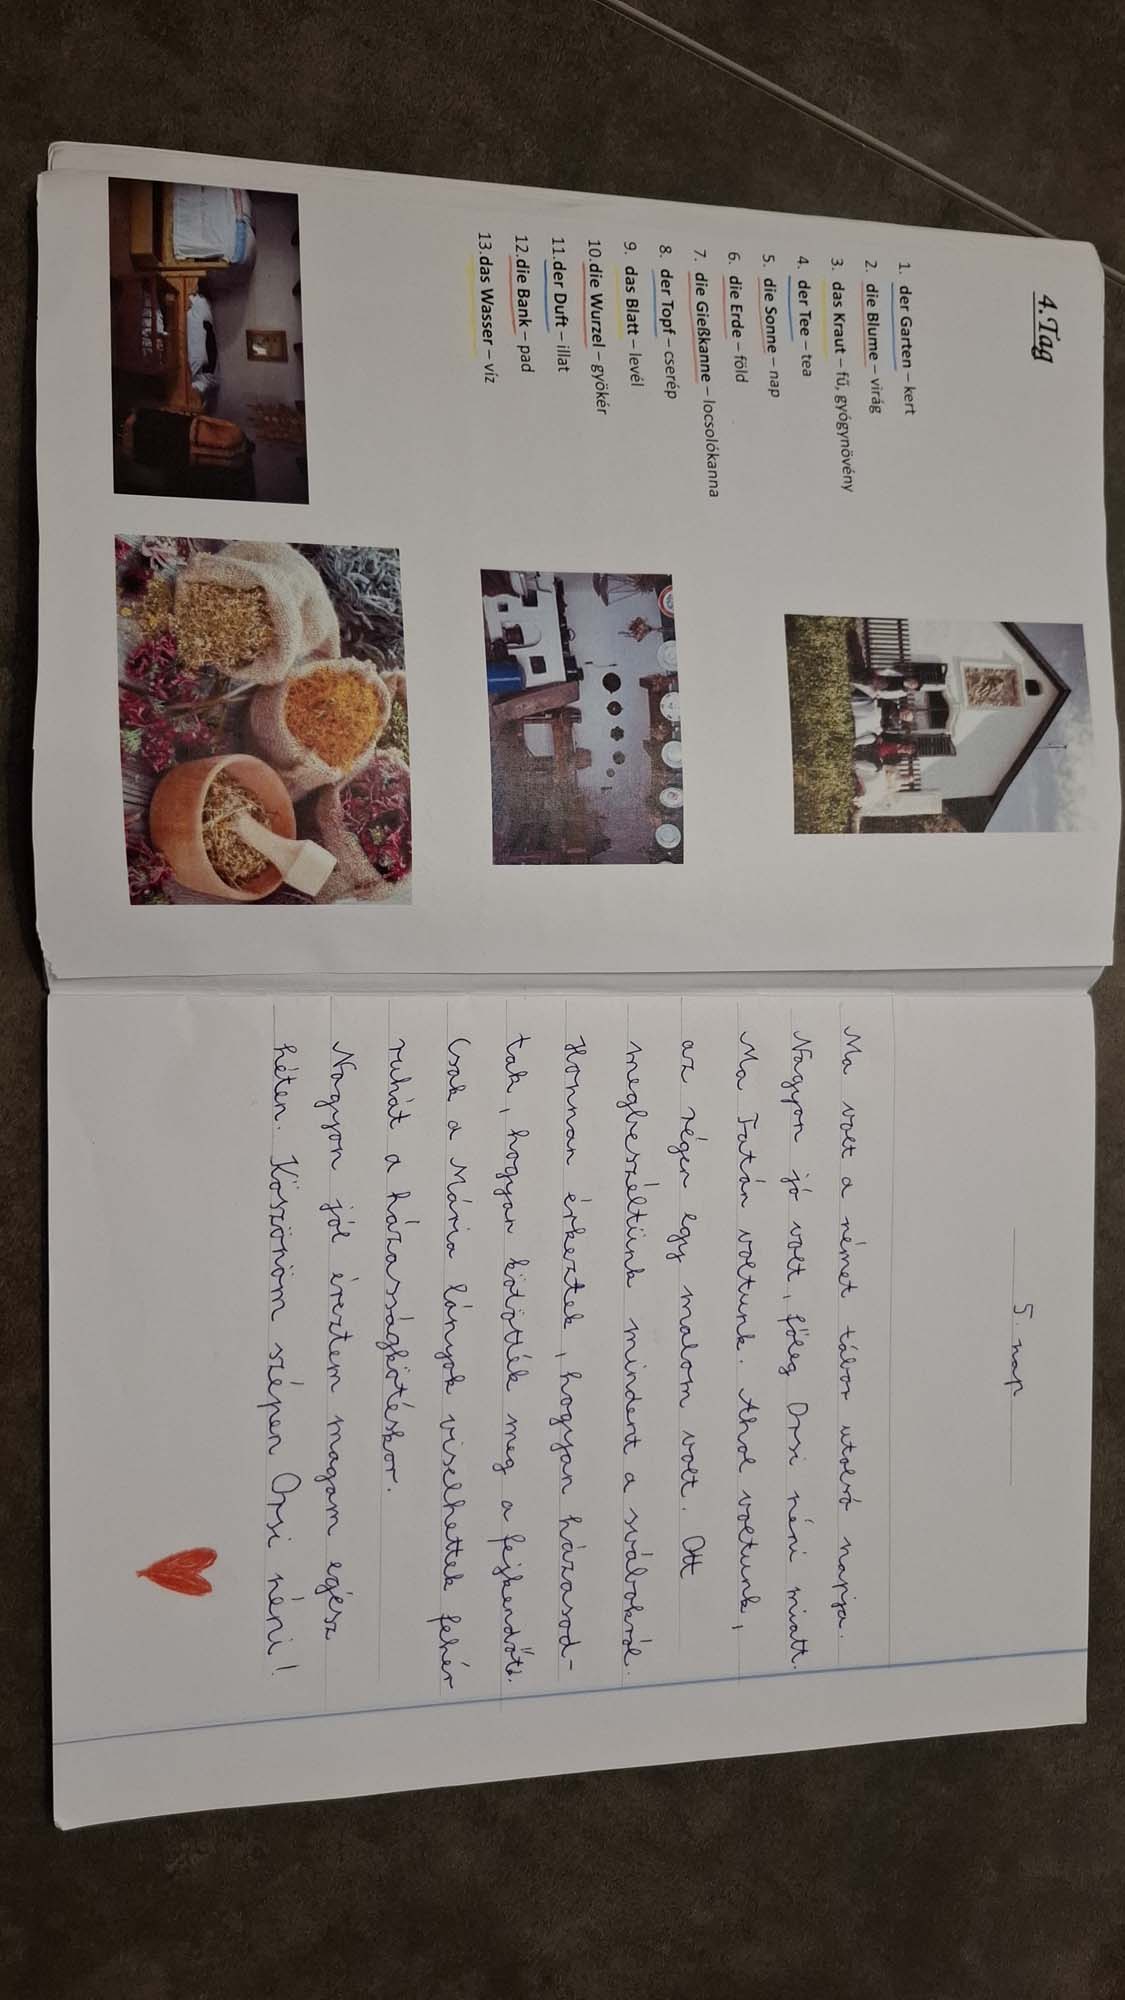 4.Tag
1. der Garten – kert
2. die Blume – virág
3. das Kraut – fű, gyógynövény
4. der Tee – tea
5. die Sonne – nap
6. die Erde – föld
7. die Gießkanne – locsolókanna
8. der Topf – cserép
9. das Blatt – levél
10. die Wurzel – gyökér
11. der Duft – illat
12. die Bank – pad
13. das Wasser – víz
5. nap
Ma volt a német tábor utolsó napja.
Nagyon jó volt, főleg Orsi néni miatt.
Ma Tatán voltunk. Ahol voltunk,
az régen egy malom volt. Ott
megbeszéltünk mindent a svábokról.
Honnan érkeztek, hogyan házasod-
tak, hogyan kötötték meg a fejkendőt.
Csak a Mária lányok viselhettek fehér
ruhát a házasságkötéskor.
Nagyon jól éreztem magam egész
héten. Köszönöm szépen Orsi néni!